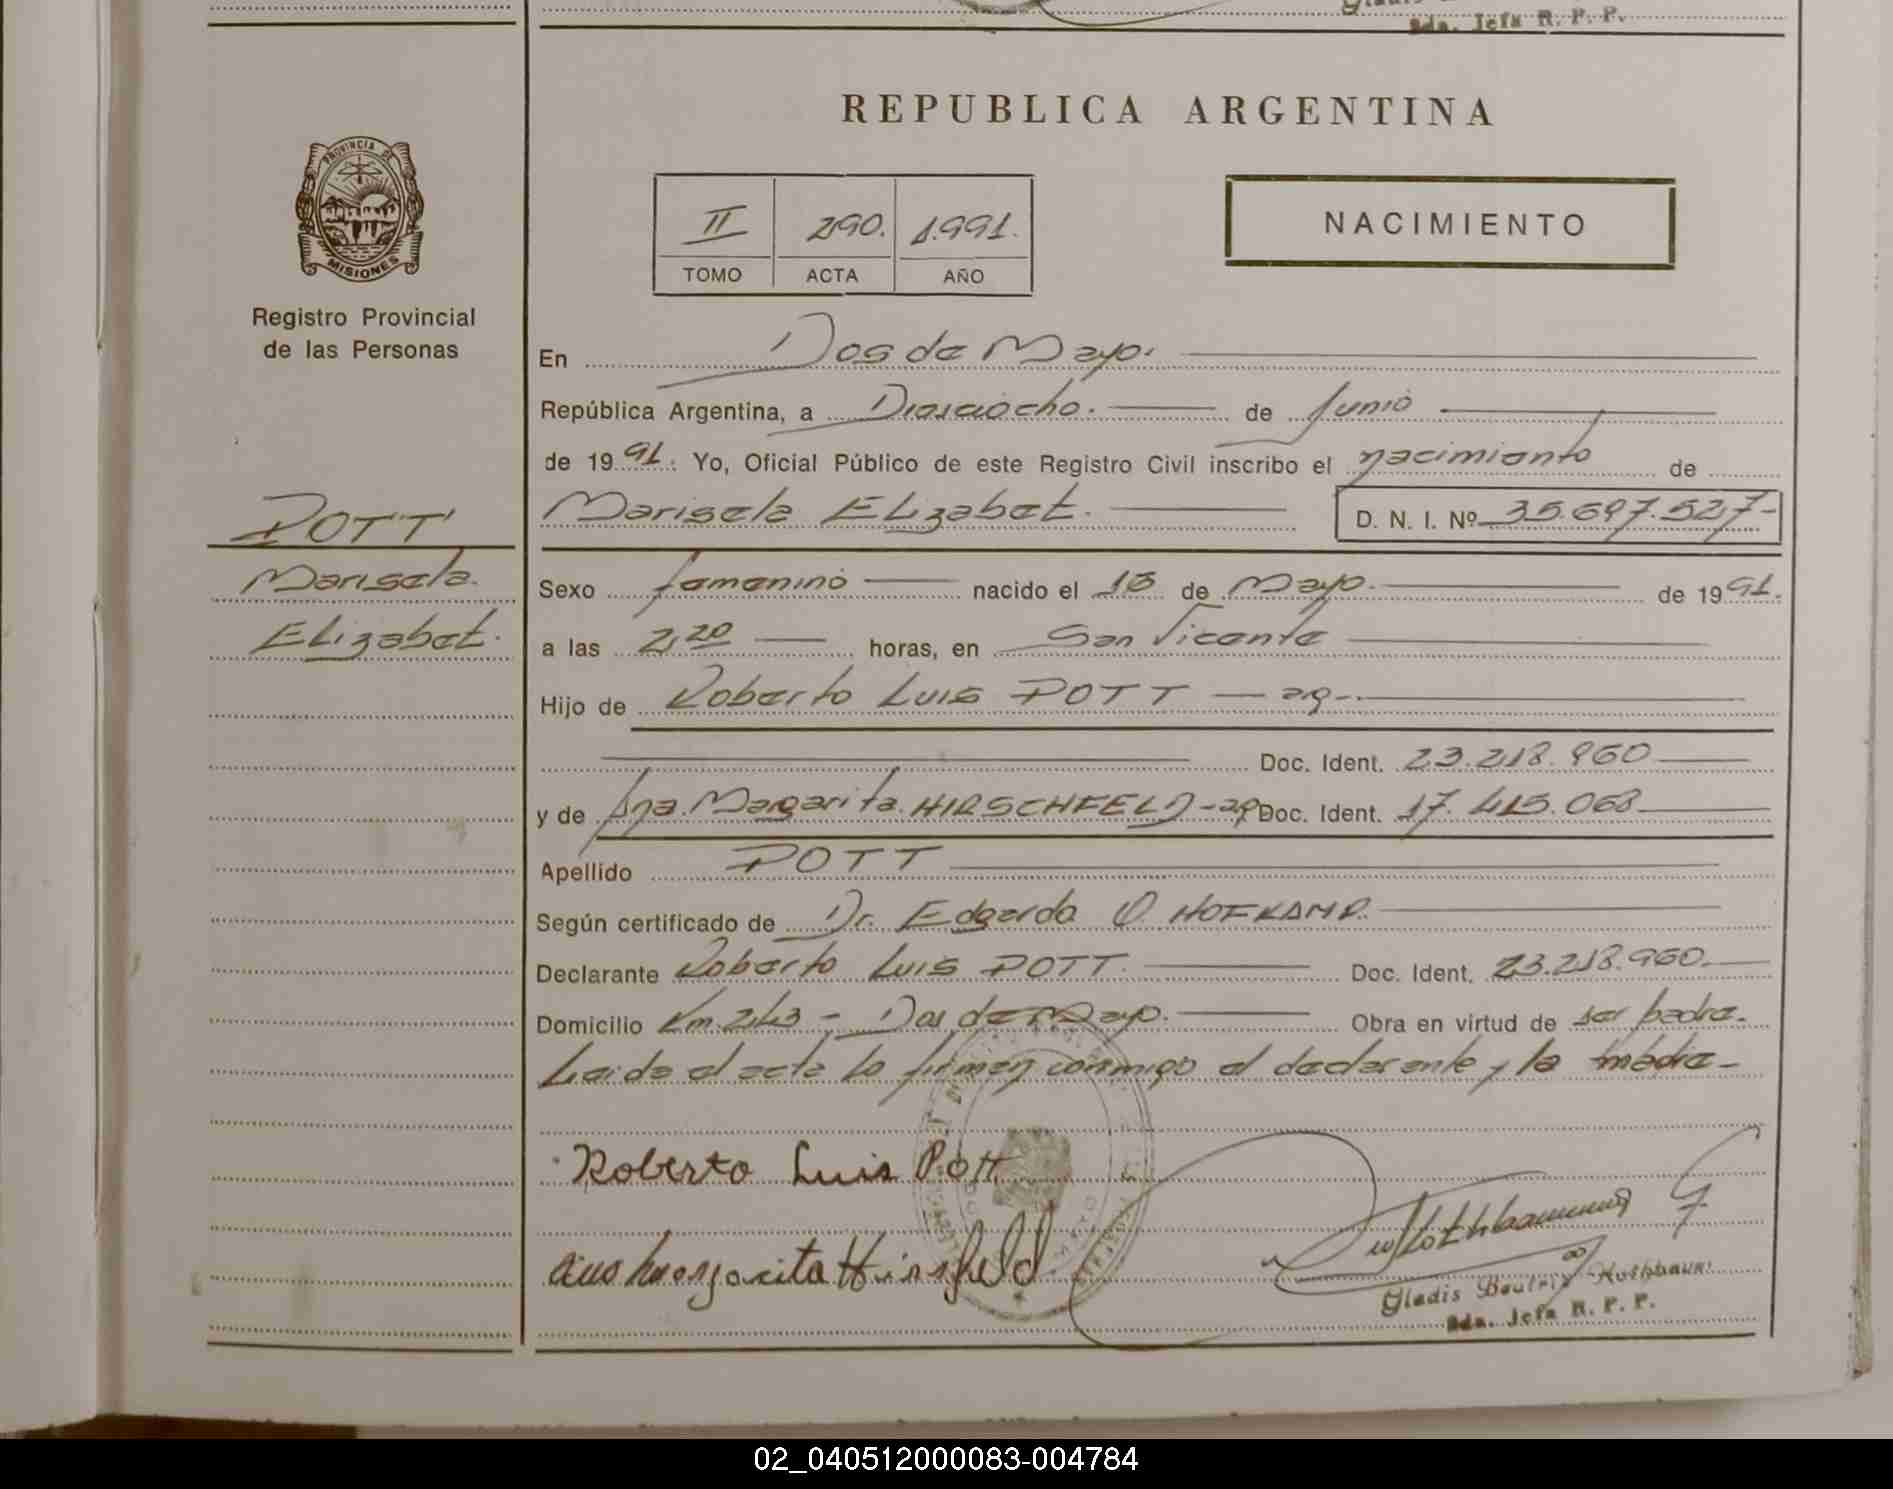 Gladis
Sda. Jefa R. P. P.
REPUBLICA ARGENTINA
PROVINCIA DE
MISIONES
Registro Provincial
de las Personas
II 290. 1.991.
TOMO ACTA AÑO
NACIMIENTO
En Dos de Mayo.
República Argentina, a Dieciocho. de Junio
de 1991. Yo, Oficial Público de este Registro Civil inscribo el nacimiento de
POTT
Marisela Elizabet. D. N. I. Nº 35.697.527-
Marisela.
Sexo femenino nacido el de Mayo. de 1991.
Elizabet.
a las 2,20 horas, en San Vicente
Hijo de Roberto Luis POTT - ag-.
Doc. Ident. 23.218.960
y de Ana. Margarita. HIRSCHFELD -ag- Doc. Ident. 17.415.068
Apellido POTT
Según certificado de Dr. Edgardo O. HOFKAMP.
Declarante Roberto Luis POTT. Doc. Ident. 23.218.960.
Domicilio Km. 243 - Dos de Mayo. Obra en virtud de ser padre.
Leida el acta lo firman conmigo el declarante y la madre-
Roberto Luis Pott
Ana Margarita Hirsfeld
Gladis Beatriz Rothbaum
Sda. Jefa R. P. P.
02_040512000083-004784